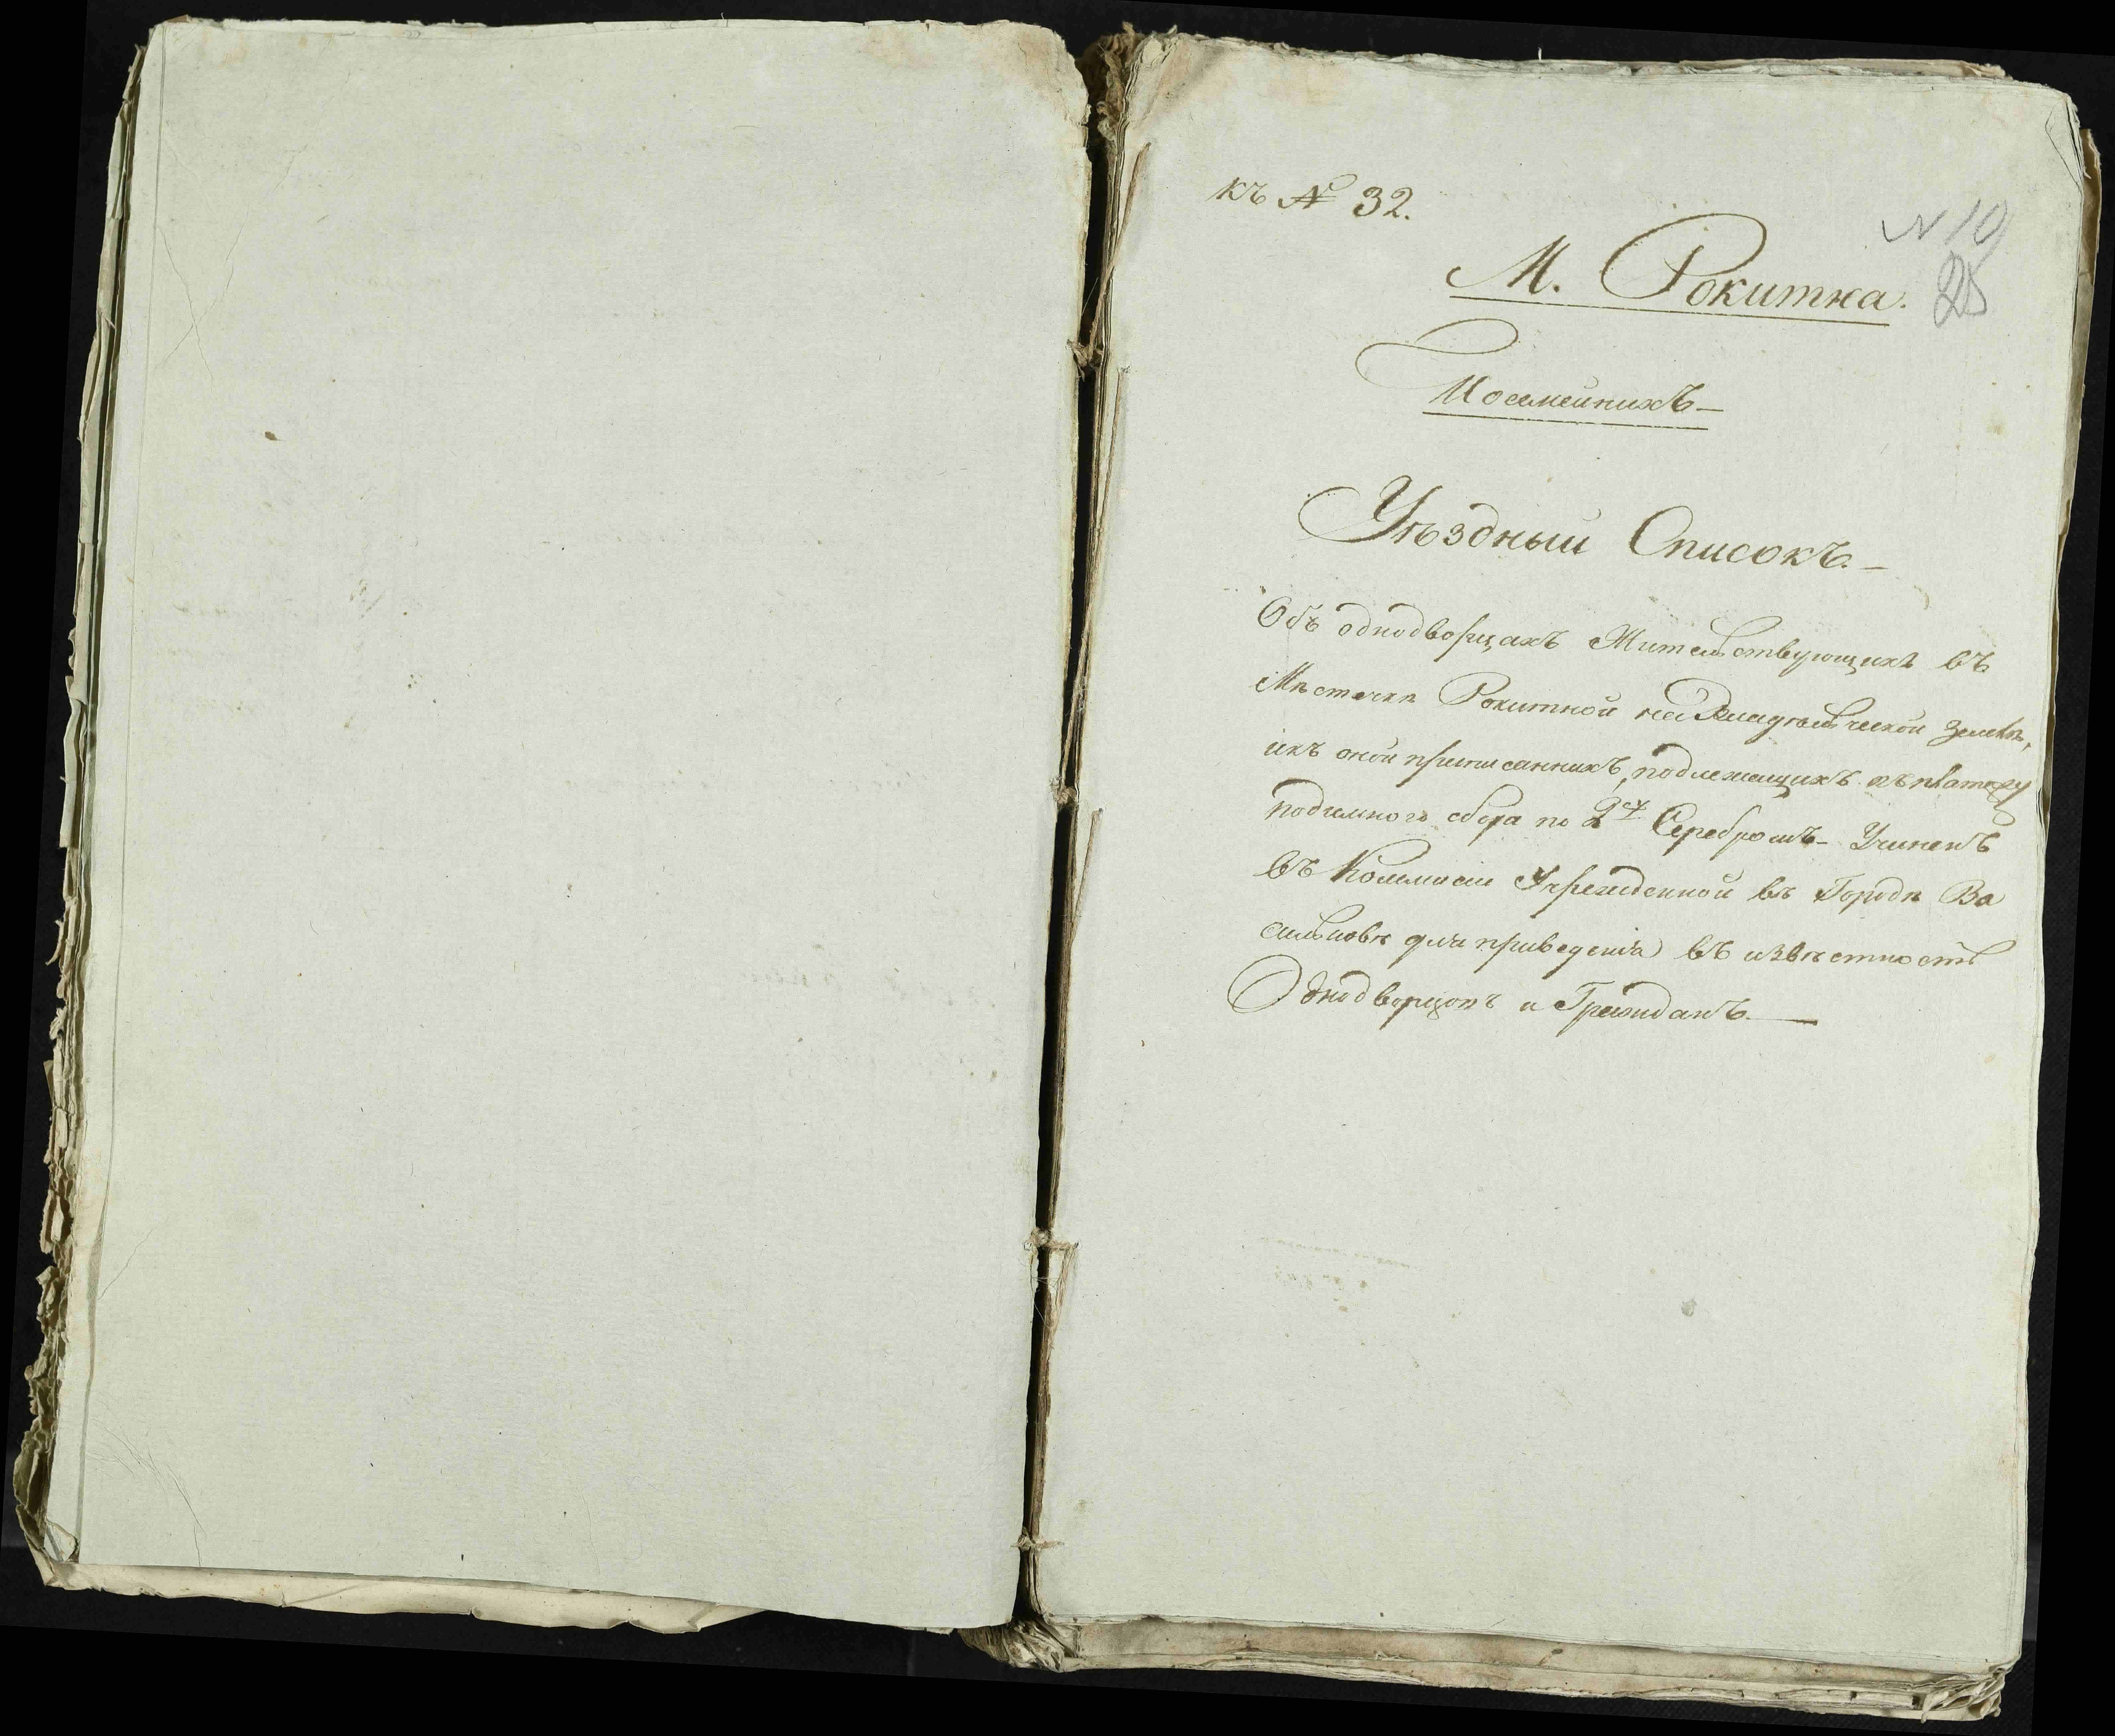 къ № 32.
N 19
28
М. Рокитна.
Посемейникъ
Уѣздный Списокъ.
Объ однодворцахъ Жительствующихъ въ
Мѣстечкѣ Рокитной на Владѣльческой землѣ,
икъ оной приписанныхъ, подлежащихъ къ платежу
подимного сбора по 2 Серебромъ - Учиненъ
въ Коммисіи Учрежденной въ Городѣ Ва
сильковѣ для приведенія въ извѣстность
Однодворцовъ и Гражданъ.